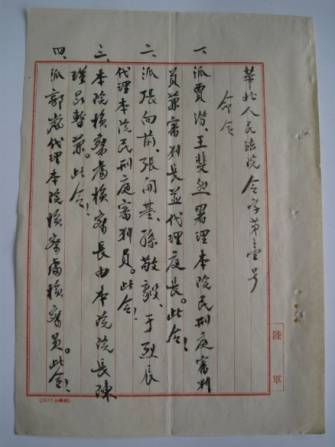 華北人民法院 令字第壹号
命令
一、派賈潜、王斐然署理本院民刑庭審判
員兼審判長並代理庭長。此令！
二、派張向前、張聞基、孫敬毅、于烈辰
代理本院民刑庭審判員。此令！
三、本院檢察處檢察長由本院院長陳
瑾昆暫兼。此令！
四、派郭嵗代理本院檢察處檢察員。此令！
陸軍